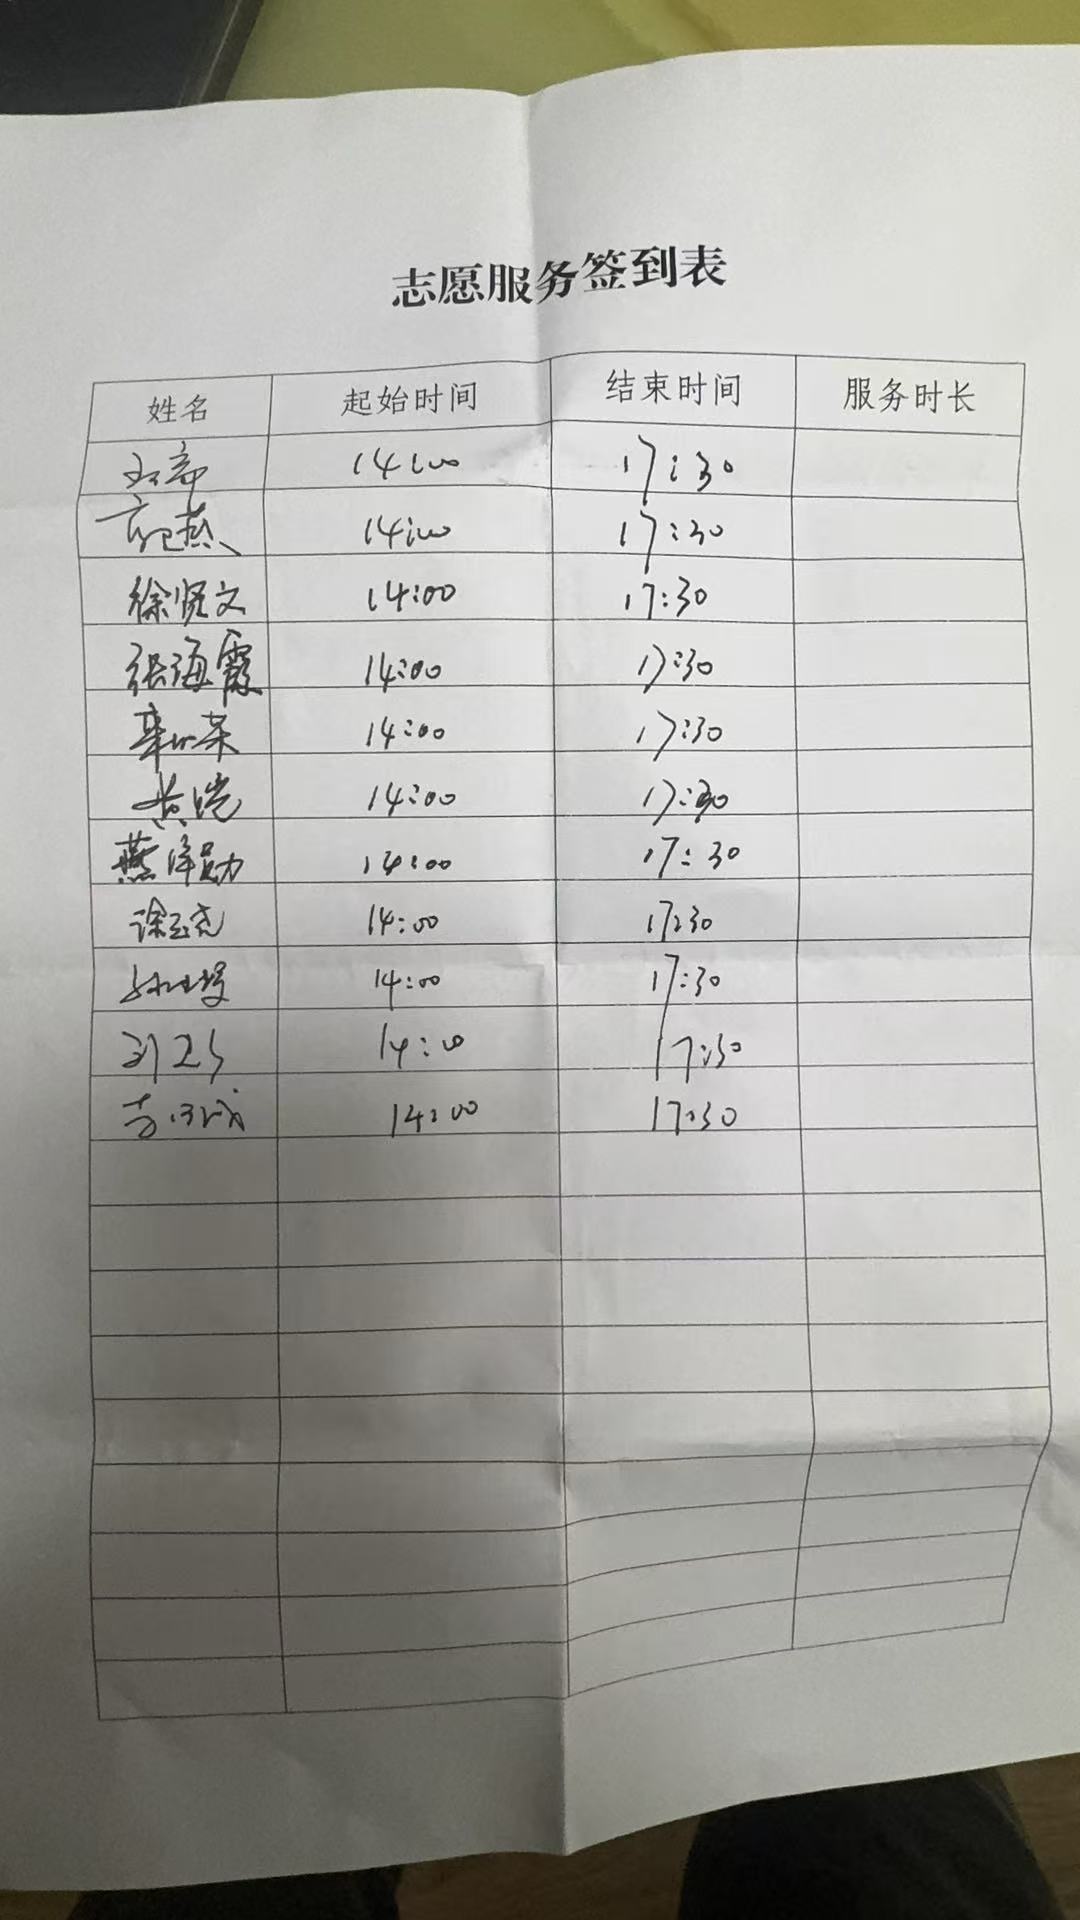 志愿服务签到表
姓名 起始时间 结束时间 服务时长
14:00 17:30
14:00 17:30
徐贤文 14:00 17:30
张海霞 14:00 17:30
14:00 17:30
黄晓 14:00 17:30
燕泽勋 14:00 17:30
14:00 17:30
14:00 17:30
14:00 17:30
14:00 17:30